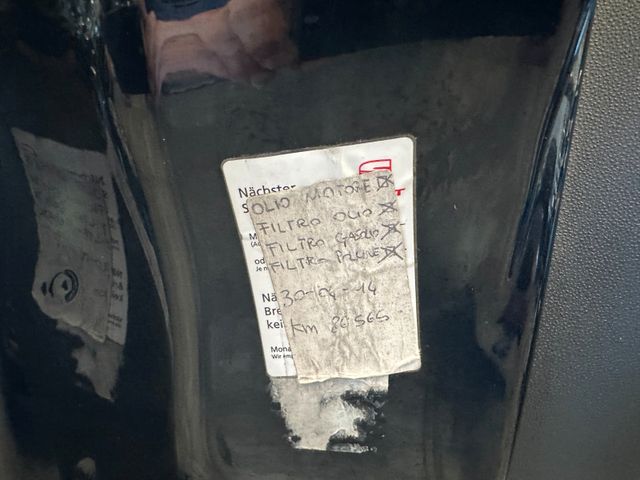 Nächster
S
OLIO MOTORE
FILTRO OLIO
FILTRO GASOLIO
FILTRO POLLINE
30-04-14
Km 86565
M
od
Je n
Nä
Bre
kei
Mona
Wir em